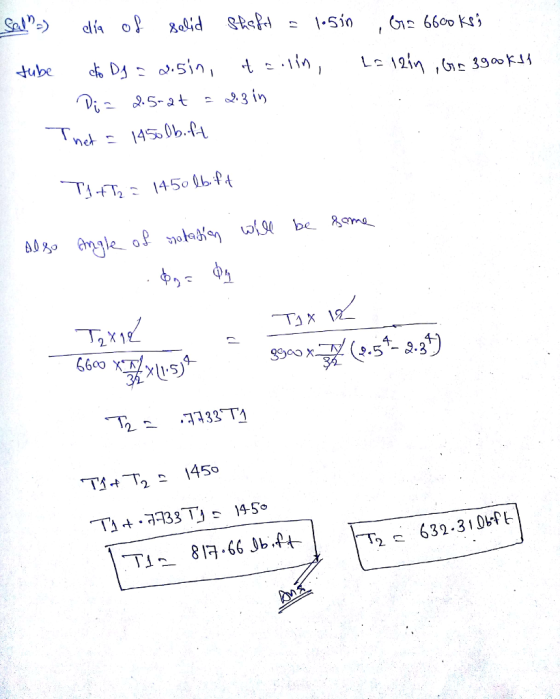 Solⁿ ⇒ dia of solid shaft = 1.5in , G = 6600 ksi
tube do D1 = 2.5in, t = .1in, L = 12in, G = 3900 ksi
Di = 2.5-2t = 2.3 in
Tnet = 1450 lb.ft
T1+T2 = 1450 lb.ft
Also Angle of rotation will be same
ϕ2 = ϕ1
T2×12 / 6600 × π/32 × (1.5)⁴ = T1×12 / 3900 × π/32 (2.5⁴ - 2.3⁴)
T2 = .7733T1
T1+T2 = 1450
T1+.7733T1 = 1450
T1 = 817.66 lb.ft T2 = 632.31 lbft
Ans